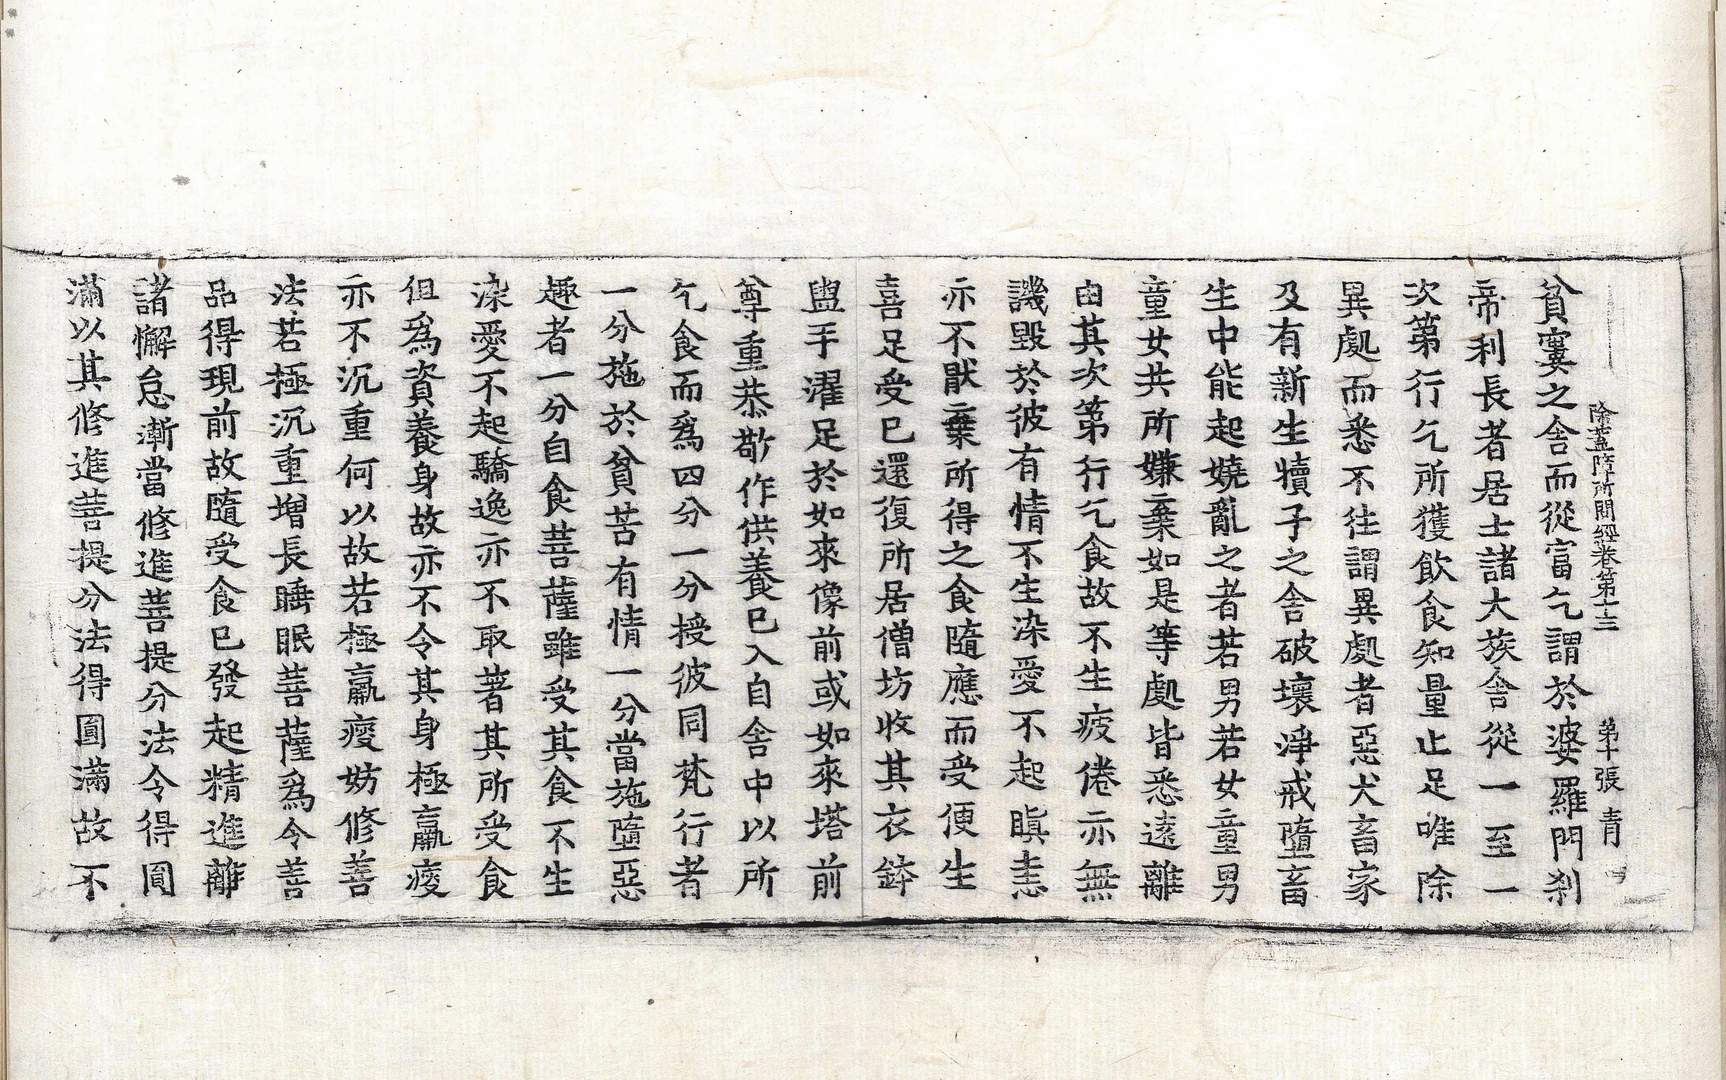 除蓋障所問經卷第十三　第十張　青
貧窶之舍而從富乞謂於婆羅門刹
帝利長者居士諸大族舍從一至一
次第行乞所獲飲食知量止足唯除
異處而悉不往謂異處者惡犬畜家
及有新生犢子之舍破壞淨戒墮畜
生中能起嬈亂之者若男若女童男
童女共所嫌棄如是等處皆悉遠離
由其次第行乞食故不生疲倦亦無
譏毀於彼有情不生染愛不起瞋恚
亦不猒棄所得之食隨應而受便生
喜足受已還復所居僧坊收其衣鉢
盥手濯足於如來像前或如來塔前
尊重恭敬作供養已入自舍中以所
乞食而爲四分一分授彼同梵行者
一分施於貧苦有情一分當施墮惡
趣者一分自食菩薩雖受其食不生
染愛不起驕逸亦不取著其所受食
但爲資養身故亦不令其身極羸瘦
亦不沉重何以故若極羸瘦妨修善
法若極沉重增長睡眠菩薩爲令善
品得現前故隨受食已發起精進離
諸懈怠漸當修進菩提分法令得圓
滿以其修進菩提分法得圓滿故不